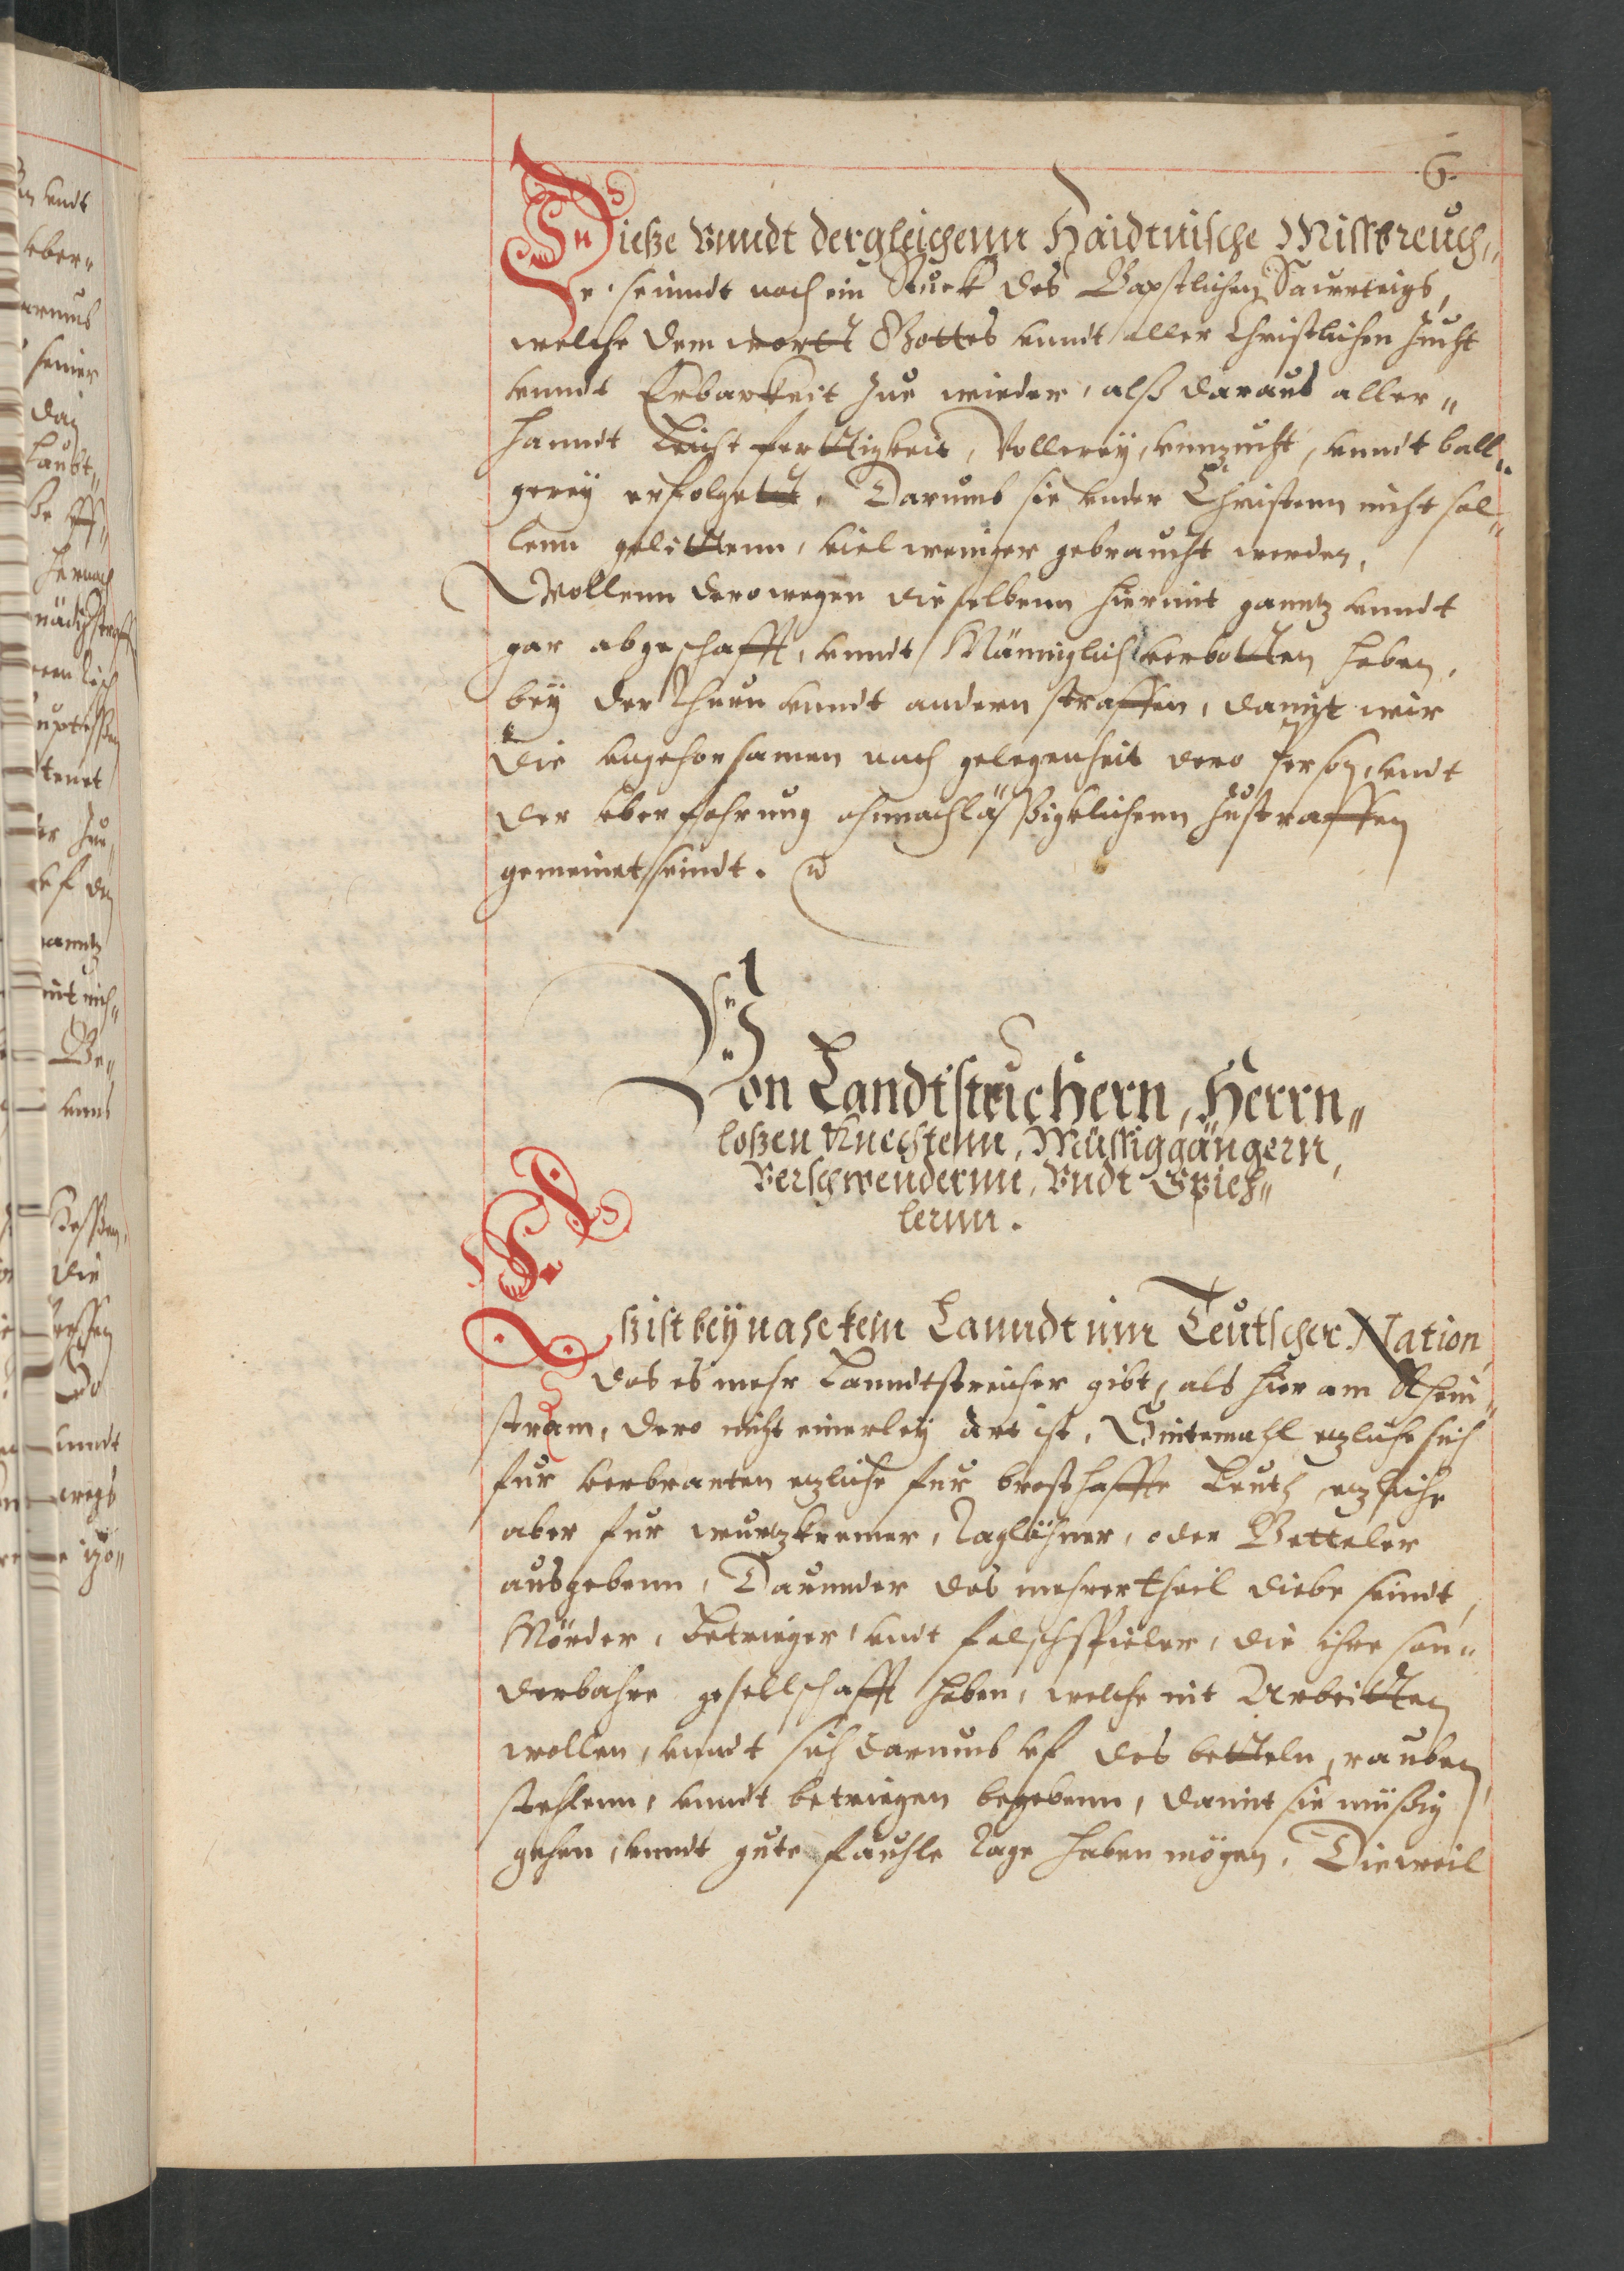 6.
Dieße vnndt dergleichenn Haidtnische Missbreuch„
e, seinndt noch ein Stuck des Bapstlichen Saurteigs,
welche dem wortt Gottes vnndt aller Christlichen zucht
vnndt Erbarkeit zue wieder, alß daraus aller„
hanndt Leichtferttigkeit, Vollerey, vnnzucht, vnndt ball„
gerey erfolgett. Darumb sie vnder Christenn nicht sol„
lenn gelittenn, viel weniger gebraucht werden,
Wollenn derowegen dieselbenn hiermit ganntz vnndt
gar abgeschafft, vnndt Männiglich verbotten haben,
bey der Thurn vnndt andern straffen, damit wir
die vngehorsamen nach gelegenheit dero Person, vndt
der vberfahrung ohnnachläßigklichenn zustraffen
gemeinet seindt.
Von Landtstreichern, Herrn„
loßen Knechtenn, Müssiggängern,
Verschwendernn, Vndt Spieh„
lernn.
Eß ist beynahe kein Lanndt inn Teutscher Nation,
das es mehr Lanndtstreicher gibt, als hier am Rhein„
strom, dero nicht einerley art ist, Sintemahl etzliche sich
fur verbranten etzliche fur bresthaffte Leuth, etzliche
aber fur wurtzkremer, Taglöhner, oder Betteler
ausgebenn, Darunder das mehrertheil diebe seindt,
Mörder, Betrieger, vndt falschspieler, die ihre son„
derbahre gesellschafft haben, welche nit Arbeitten
wollen, vnndt sich darumb vf das betteln, rauben,
stehlenn, vnndt betriegen begebenn, damit sie müßig
gehen, vnndt gute fauhle Tage haben mögen, Dieweil